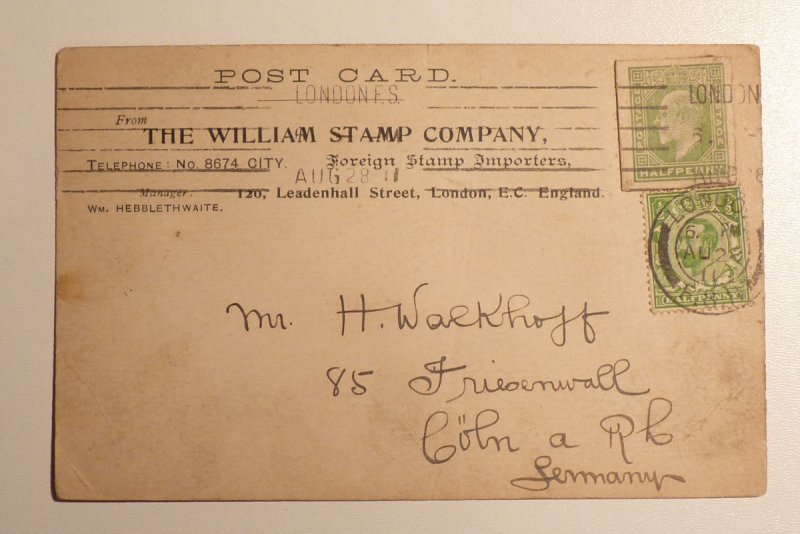 POST CARD.
LONDON F.S
LONDON
From
THE WILLIAM STAMP COMPANY,
TELEPHONE: NO. 8674 CITY. Foreign Stamp Importers,
AUG 28 11
Manager:
120, Leadenhall Street, London, E.C. England.
WM. HEBBLETHWAITE.
HALFPENNY
Mr. H. Walkhoff
85 Friesenwall
Cöln a Rh
Germany